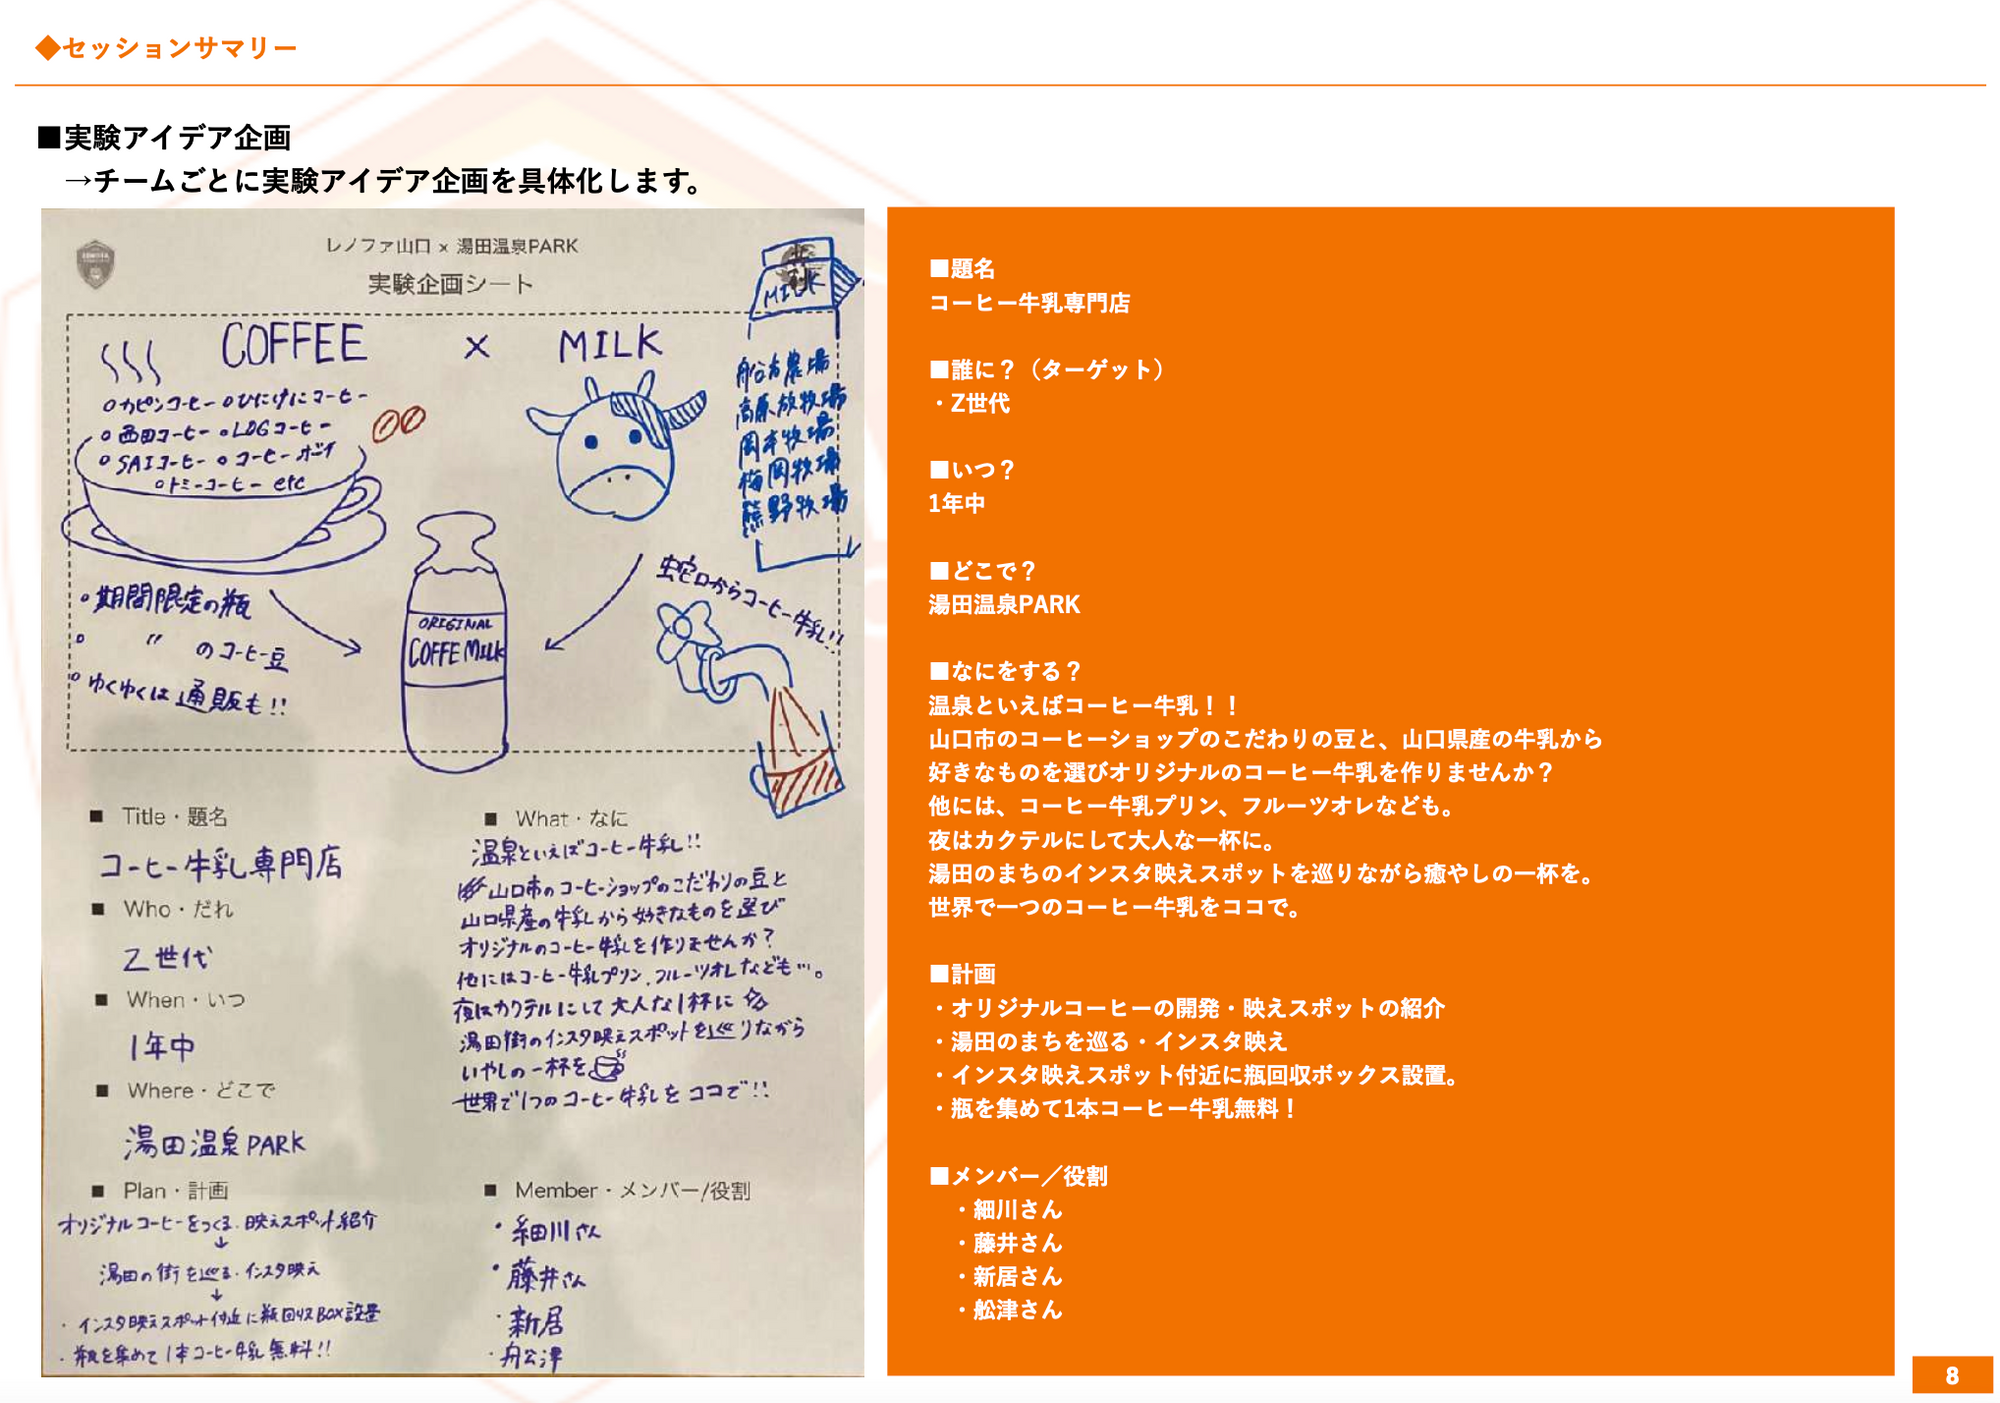 ◆セッションサマリー
■実験アイデア企画
→チームごとに実験アイデア企画を具体化します。
レノファ山口 × 湯田温泉PARK
実験企画シート
COFFEE × MILK
MILK
○カピンコーヒー ○ひにけにコーヒー
○西田コーヒー ○LOGコーヒー
○SAIコーヒー ○コーヒーボーイ
○トミーコーヒー etc
船方農場
高原放牧場
岡本牧場
梅岡牧場
熊野牧場
○期間限定の瓶
○ 〃 のコーヒー豆
○ゆくゆくは通販も!!
ORIGINAL
COFFE MILK
蛇口からコーヒー牛乳!!
■ Title・題名
コーヒー牛乳専門店
■ Who・だれ
Z世代
■ When・いつ
1年中
■ Where・どこで
湯田温泉PARK
■ Plan・計画
オリジナルコーヒーをつくる・映えスポット紹介
↓
湯田の街を巡る・インスタ映え
↓
・インスタ映えスポット付近に瓶回収BOX設置
・瓶を集めて1本コーヒー牛乳無料!!
■ What・なに
温泉といえばコーヒー牛乳!!
山口市のコーヒーショップのこだわりの豆と
山口県産の牛乳から好きなものを選び
オリジナルのコーヒー牛乳を作りませんか?
他にはコーヒー牛乳プリン、フルーツオレなども…。
夜はカクテルにして大人な1杯に☆
湯田街のインスタ映えスポットを巡りながら
いやしの一杯を
世界で1つのコーヒー牛乳をココで!!
■ Member・メンバー/役割
・細川さん
・藤井さん
・新居
・舩津
■題名
コーヒー牛乳専門店
■誰に？（ターゲット）
・Z世代
■いつ？
1年中
■どこで？
湯田温泉PARK
■なにをする？
温泉といえばコーヒー牛乳！！
山口市のコーヒーショップのこだわりの豆と、山口県産の牛乳から
好きなものを選びオリジナルのコーヒー牛乳を作りませんか？
他には、コーヒー牛乳プリン、フルーツオレなども。
夜はカクテルにして大人な一杯に。
湯田のまちのインスタ映えスポットを巡りながら癒やしの一杯を。
世界で一つのコーヒー牛乳をココで。
■計画
・オリジナルコーヒーの開発・映えスポットの紹介
・湯田のまちを巡る・インスタ映え
・インスタ映えスポット付近に瓶回収ボックス設置。
・瓶を集めて1本コーヒー牛乳無料！
■メンバー／役割
・細川さん
・藤井さん
・新居さん
・舩津さん
8